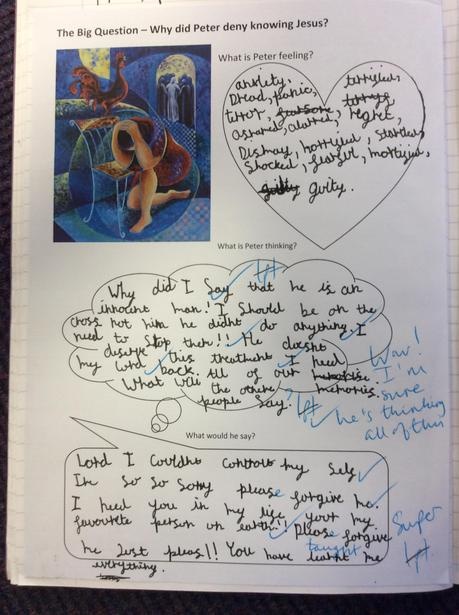 The Big Question – Why did Peter deny knowing Jesus?
What is Peter feeling?
anxiety, terrified,
Dread, panic,
terror,
asramed, alarmed, regret,
Dismay, horryfied, startled,
Shocked, fearful, mortified,
guilty.
What is Peter thinking?
Why did I Say that he is an
innocent man! I Should be on the
cross not him he didnt do anything. I
need to Stop them!! He doesnt
deserve this treatment I need
my lord back. All of our
memories.
What will the other
people Say?
Wow!
I'm
sure
he's thinking
all of this
What would he say?
Lord I Couldnt controll my Self
Im So So Sorry please forgive me.
I need you in my life your my
favourite person on earth!! Please forgive
me Just pleas!! You have learnt me
taught
everything.
Super